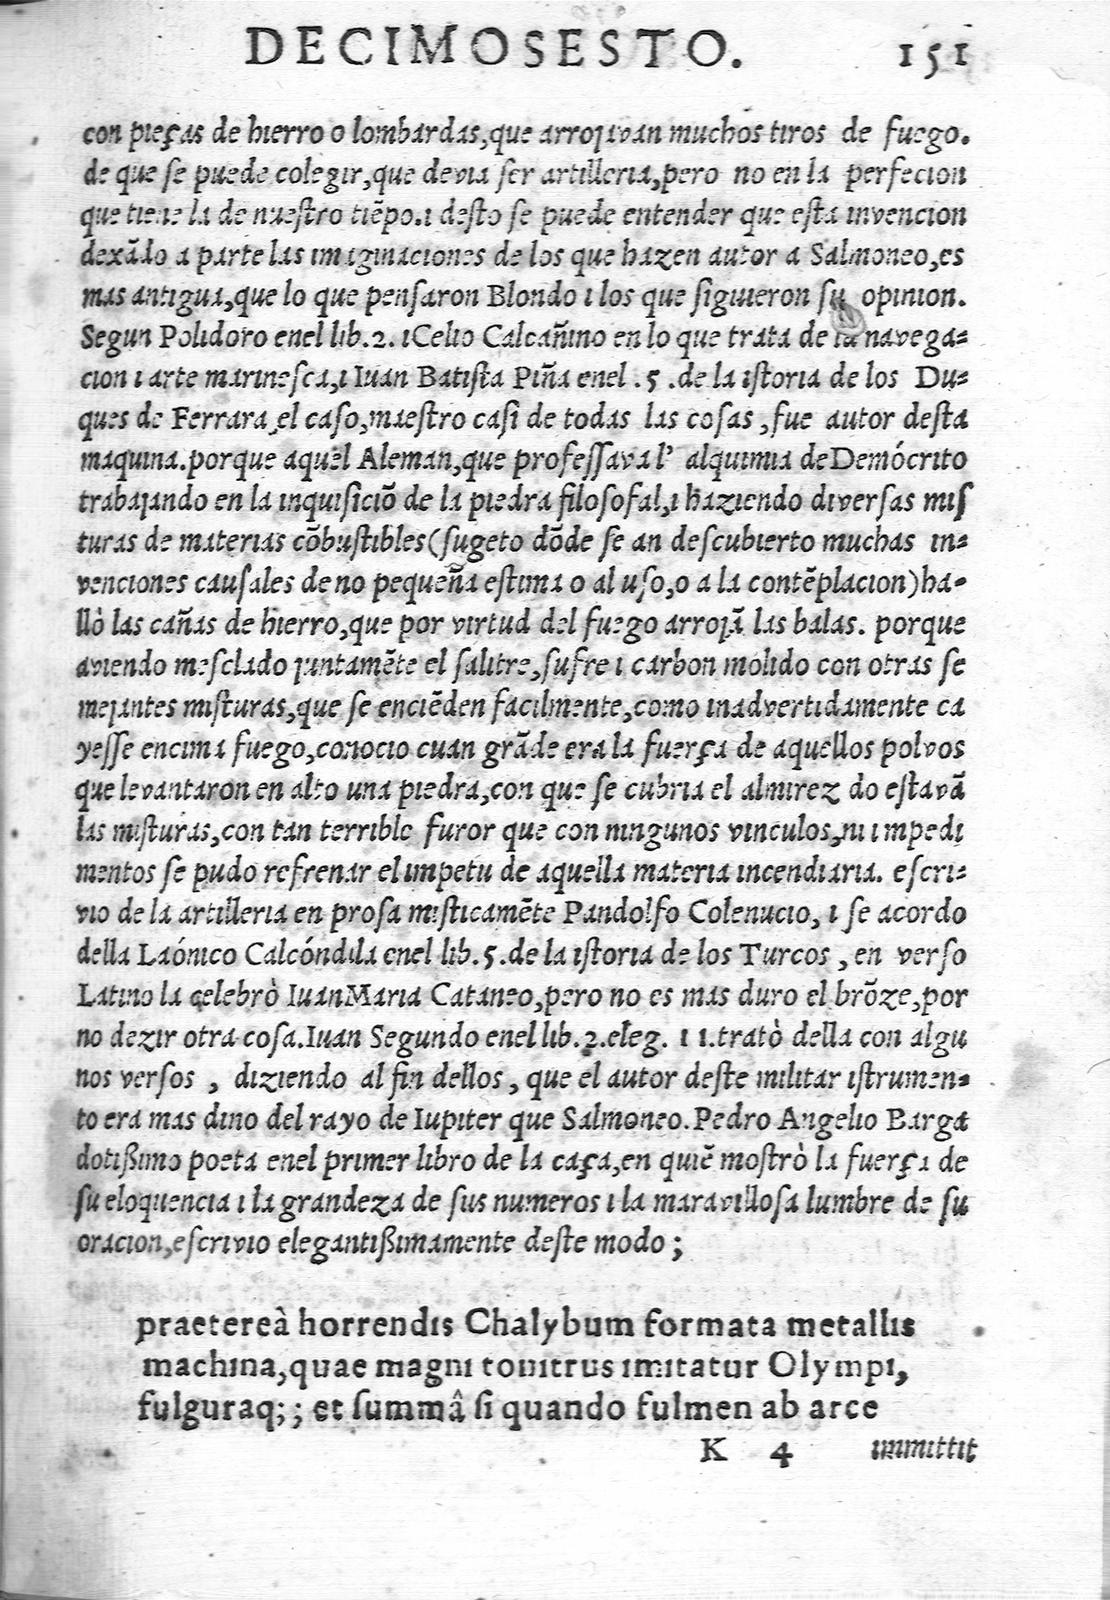 DECIMOSESTO. 151
con pieças de hierro o lombardas,que arrojavan muchos tiros de fuego.
de que se puede colegir,que devia ser artilleria,pero no en la perfecion
que tiene la de nuestro tiẽpo.i desto se puede entender que esta invencion
dexãdo a parte las imaginaciones de los que hazen autor a Salmoneo,es
mas antigua,que lo que pensaron Blondo i los que siguieron su opinion.
Segun Polidoro enel lib.2. i Celio Calcañino en lo que trata de la navega=
cion i arte marinesca,i Iuan Batista Piña enel .5 .de la istoria de los Du=
ques de Ferrara el caso,maestro casi de todas las cosas ,fue autor desta
maquina.porque aquel Aleman,que professava l' alquimia de Demócrito
trabajando en la inquisiciõ de la piedra filosofal,i haziendo diversas mis
turas de materias cõbustibles(sugeto dõde se an descubierto muchas in=
venciones causales de no pequeña estima o al uso,o a la contẽplacion)ha=
llò las cañas de hierro,que por virtud del fuego arrojã las balas. porque
aviendo mesclado juntamẽte el salitre,sufre i carbon molido con otras se
mejantes misturas,que se enciẽden facilmente,como inadvertidamente ca
yesse encima fuego,conocio cuan grãde era la fuerça de aquellos polvos
que levantaron en alto una piedra,con que se cubria el almirez do estavã
las misturas,con tan terrible furor que con ningunos vinculos,ni impedi
mentos se pudo refrenar el impetu de aquella materia incendiaria. escri=
vio de la artilleria en prosa misticamẽte Pandolfo Colenucio, i se acordo
della Laónico Calcóndila enel lib.5.de la istoria de los Turcos , en verso
Latino la celebrò Iuan Maria Cataneo,pero no es mas duro el brõze,por
no dezir otra cosa.Iuan Segundo enel lib.2.eleg. 11.tratò della con algu
nos versos , diziendo al fin dellos , que el autor deste militar istrumen=
to era mas dino del rayo de Iupiter que Salmoneo.Pedro Angelio Barga
dotißimo poeta enel primer libro de la caça,en quiẽ mostrò la fuerça de
su eloquencia i la grandeza de sus numeros i la maravillosa lumbre de su
oracion,escrivio elegantißimamente deste modo ;
praetereà horrendis Chalybum formata metallis
machina,quae magni tonitrus imitatur Olympi,
fulguraq; ; et summâ si quando fulmen ab arce
K 4 immittit